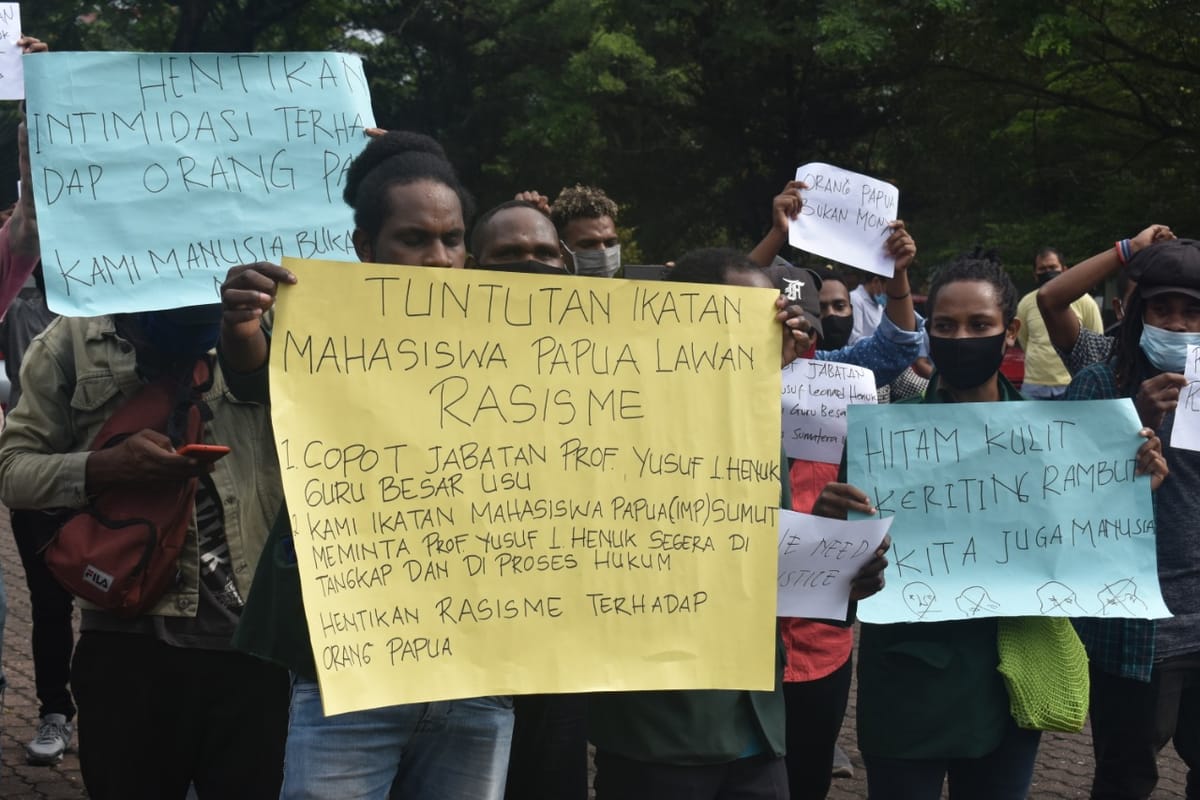 HENTIKAN
INTIMIDASI TERHA
DAP ORANG
KAMI MANUSIA
TUNTUTAN IKATAN
MAHASISWA PAPUA LAWAN
RASISME
1. COPOT JABATAN PROF. YUSUF L. HENUK
GURU BESAR USU
2. KAMI IKATAN MAHASISWA PAPUA (IMP) SUMUT
MEMINTA PROF YUSUF L. HENUK SEGERA DI
TANGKAP DAN DI PROSES HUKUM
HENTIKAN RASISME TERHADAP
ORANG PAPUA
ORANG PAPUA
BUKAN MON
JABATAN
usuf Leonard Henuk
Guru Besar
Sumatera
NEED
HITAM KULIT
KERITING RAMBUT
KITA JUGA MANUSIA
FILA